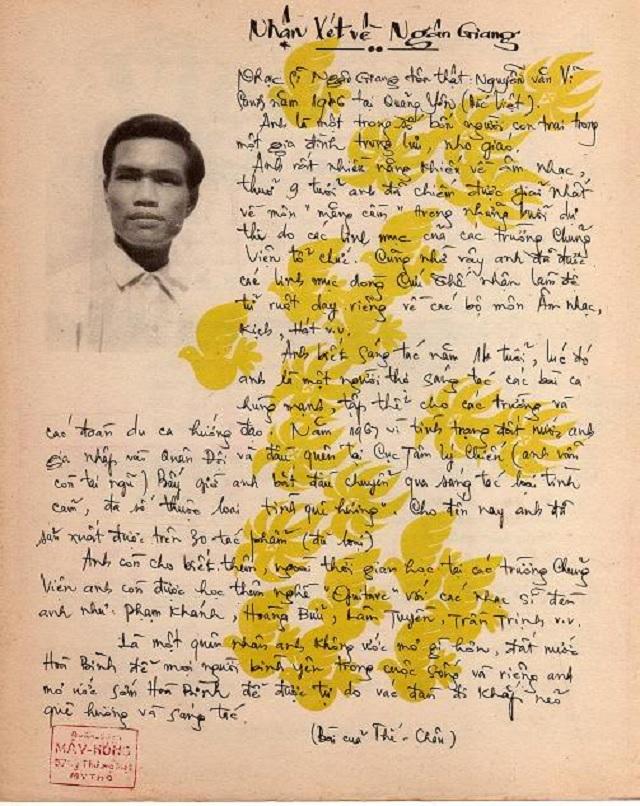 Nhận Xét về Ngân Giang
Nhạc sĩ Ngân Giang tên thật: Nguyễn văn Vi
sanh năm 1946 tại Quảng Yên (Bắc Việt).
Anh là một trong số bốn người con trai trong
một gia đình trung lưu, nho giáo.
Anh rất nhiều năng khiếu về âm nhạc,
thuở 9 tuổi anh đã chiếm được giải nhất
về môn "măng cầm" trong những buổi dự
thi do các linh mục của các trường Chủng
Viện tổ chức. Cũng nhờ vậy anh đã được
các linh mục dòng Cứu Thế nhận làm đệ
tử ruột dạy riêng về các bộ môn Âm nhạc,
Kịch, Hát v.v.
Anh biết sáng tác năm 16 tuổi, lúc đó
anh là một người thợ sáng tác các bài ca
hùng mạnh, tập thể cho các trường và
các đoàn du ca hướng đạo. Năm 1967 vì tình trạng đất nước anh
gia nhập vào Quân Đội và đầu quân tại Cục Tâm Lý Chiến (anh vẫn
còn tại ngũ) Bấy giờ anh bắt đầu chuyển qua sáng tác loại tình
cảm, đa số thuộc loại "tình quê hương". Cho đến nay anh đã
sản xuất được trên 30 tác phẩm (đủ loại)
Anh còn cho biết thêm, ngoài thời gian học tại các trường Chủng
Viện anh còn được học thêm nghề "Guitare" với các nhạc sĩ đàn
anh như: Phạm Khánh, Hoàng Bửu, Lâm Tuyền, Trần Trịnh v.v.
Là một quân nhân anh không ước mơ gì hơn, đất nước
Hoà Bình để mọi người bình yên trong cuộc sống và riêng anh
mơ ước sớm Hoà Bình để được tự do vác đàn đi khắp nẻo
quê hương và sáng tác.
(Bài của Thế-Châu)
MÂY-HỒNG
MYTHO